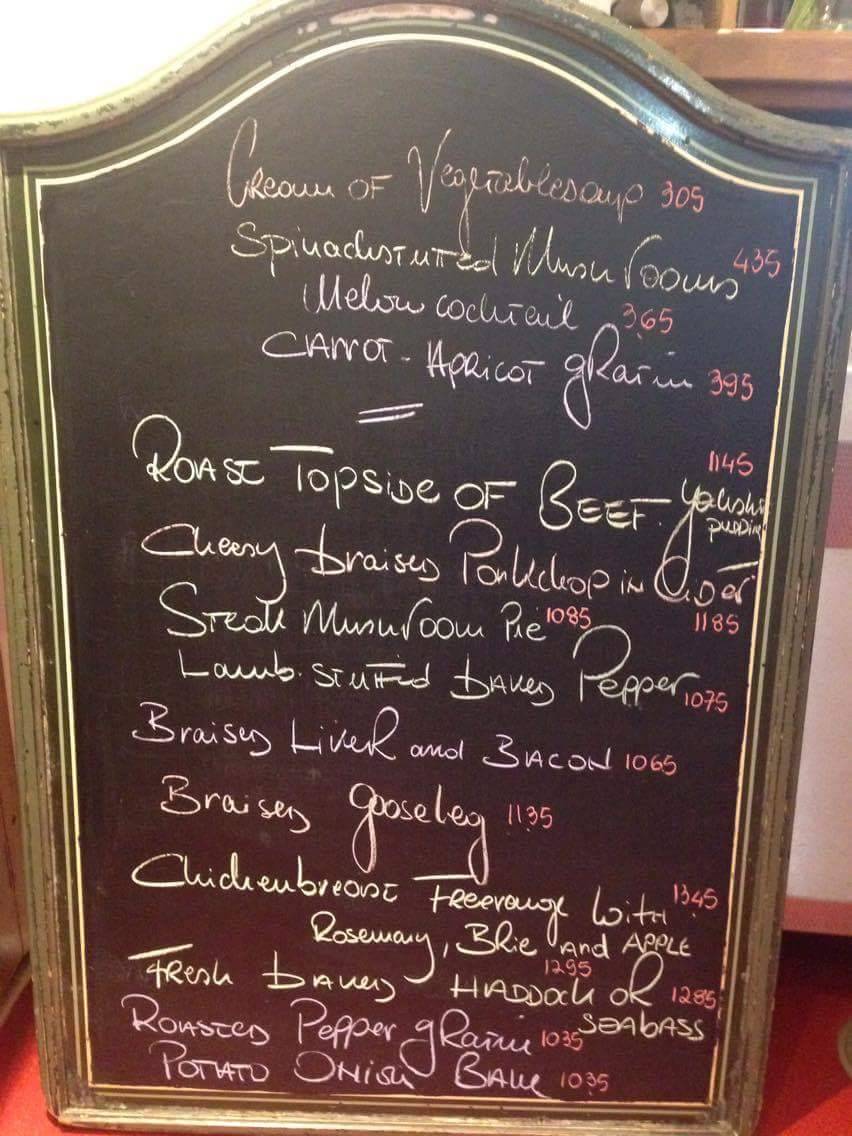 Cream of Vegetablesoup 305
Spinachstuffed Mushrooms 435
Melon cocktail 365
Carrot - Apricot gratin 395
1145
Roast Topside of Beef. Yorkshi
pudding
Cheesy braised Porkchop in Cider
Steak Mushroom Pie 1085 1185
Lamb. stuffed baked Pepper 1075
Braised Liver and Bacon 1065
Braised gooseleg 1135
Chickenbreast Freerange with 1345
Rosemary, Brie and Apple
Fresh baked Haddock 1295 or 1285
Seabass
Roasted Pepper gratin 1035
Potato Onion Bake 1035